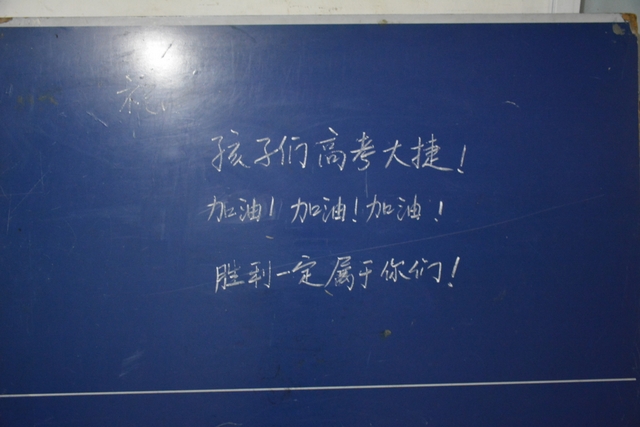 孩子们高考大捷!
加油!加油!加油!
胜利一定属于你们!